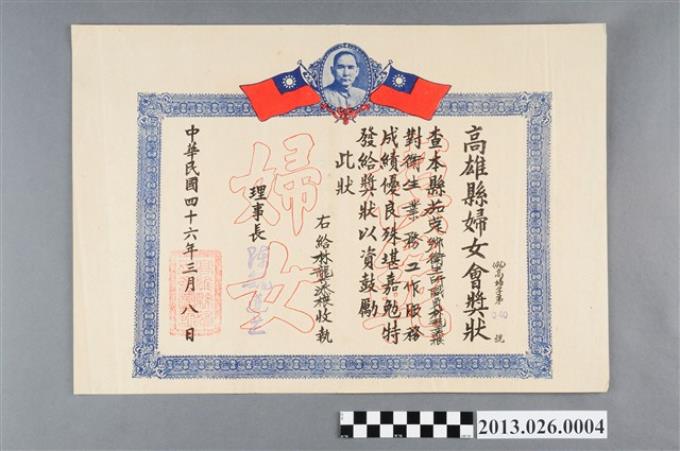 高雄縣婦女會獎狀
高婦字第 號
查本縣茄萣鄉衛生所職員林龍
對衛生業務工作服務
成績優良殊堪嘉勉特
發給獎狀以資鼓勵
此狀
右給林龍 收執
理事長
中華民國四十六年三月八日
婦女
2013.026.0004